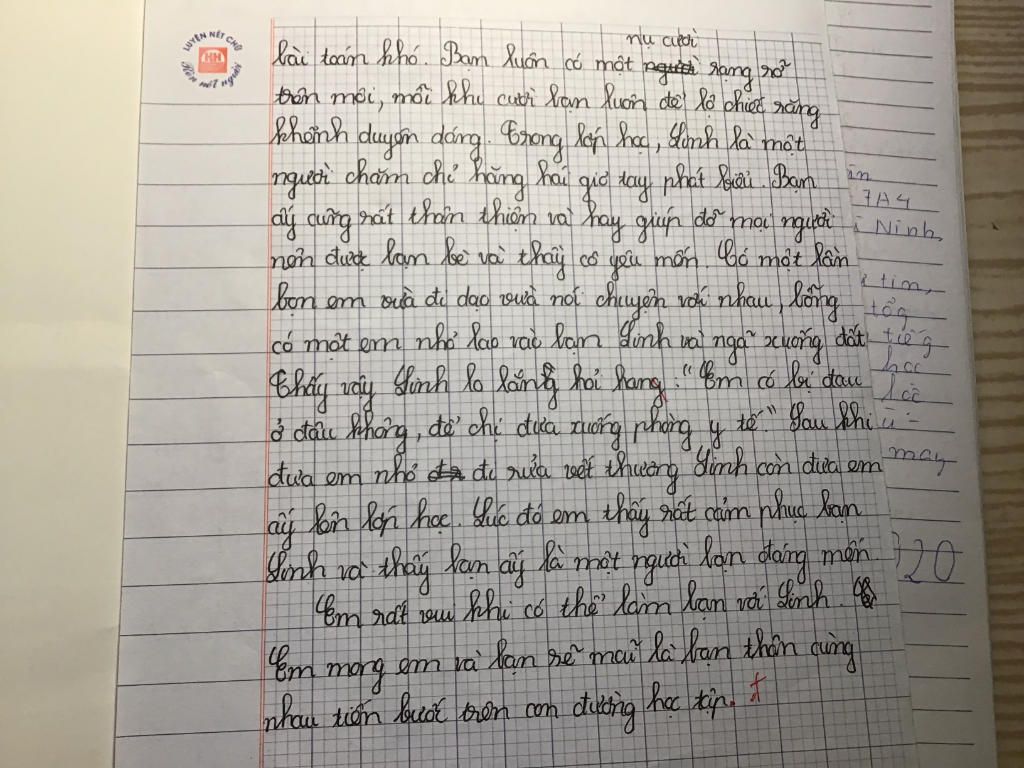 LUYỆN NẾT CHỮ
HH
Rèn nết người
nụ cười
bài toán khó. Bạn luôn có một người rạng rỡ
trên môi, mỗi khi cười bạn luôn để lộ chiếc răng
khểnh duyên dáng. Trong lớp học, Linh là một
người chăm chỉ hăng hái giơ tay phát biểu. Bạn
ấy cũng rất thân thiện và hay giúp đỡ mọi người
nên được bạn bè và thầy cô yêu mến. Có một lần
bọn em vừa đi dạo vừa nói chuyện với nhau, bỗng
có một em nhỏ lao vào bạn Linh và ngã xuống đất
Thấy vậy Linh lo lắng hỏi han: "Em có bị đau
ở đâu không, để chị đưa xuống phòng y tế." Sau khi
đưa em nhỏ đi rửa vết thương Linh còn đưa em
ấy lên lớp học. Lúc đó em thấy rất cảm phục bạn
Linh và thấy bạn ấy là một người bạn đáng mến
Em rất vui khi có thể làm bạn với Linh.
Em mong em và bạn sẽ mãi là bạn thân cùng
nhau tiến bước trên con đường học tập.
7A4
Ninh,
tim,
tổg
tiếg
học
may
20